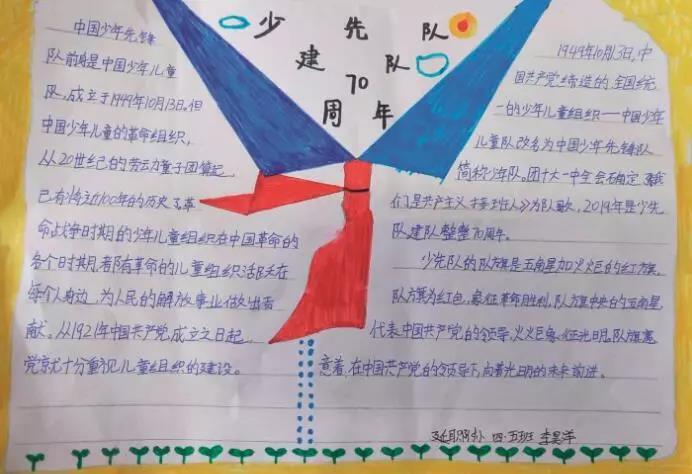 少先队
建队
70
周年
中国少年先锋
队前身是中国少年儿童
队,成立于1949年10月13日。但
中国少年儿童的革命组织,
从20世纪的劳动童子团算起,
已有将近100年的历史了。革
命战争时期的少年儿童组织在中国革命的
各个时期,都有革命的儿童组织活跃在
每个人身边,为人民的解放事业做出贡
献。从1921年中国共产党成立之日起,
党就十分重视儿童组织的建设。
1949年10月13日,中
国共产党缔造的全国统
一的少年儿童组织——中国少年
儿童队改名为中国少年先锋队
简称少年队。团十大一中全会确定《我
们是共产主义接班人》为队歌,2019年是少先
队建队整整70周年。
少先队的队旗是五角星加火炬的红旗,
队旗为红色,象征革命胜利,队旗中央的五角星
代表中国共产党的领导,火炬象征光明,队旗寓
意着,在中国共产党的领导下向着光明的未来前进。
延职附小 四·五班 李昊洋